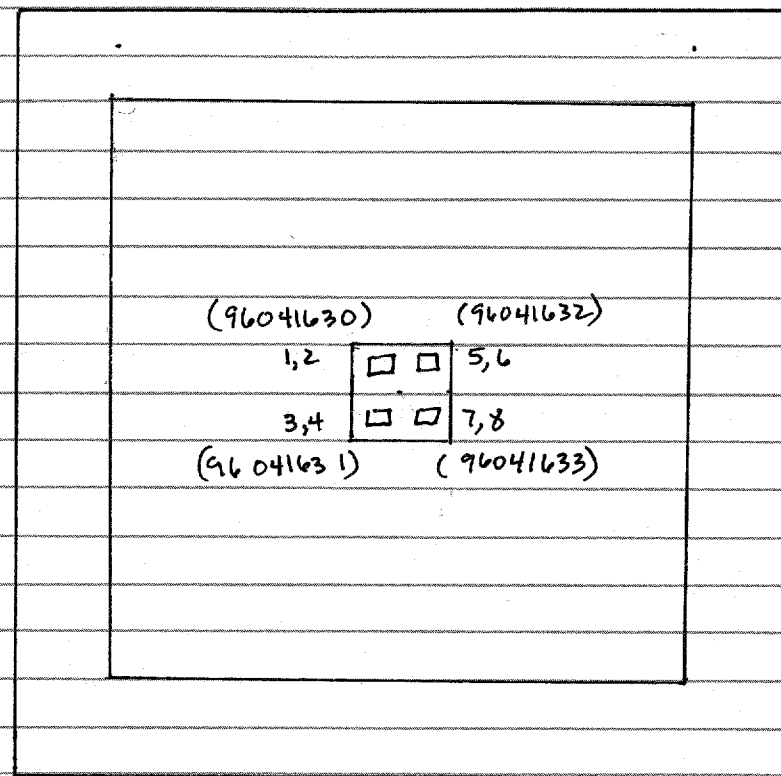 (96041630) (96041632)
1,2 5,6
3,4 7,8
(96041631) (96041633)